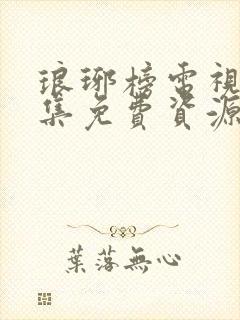 琅琊榜電視
集免費資源
葉落無心